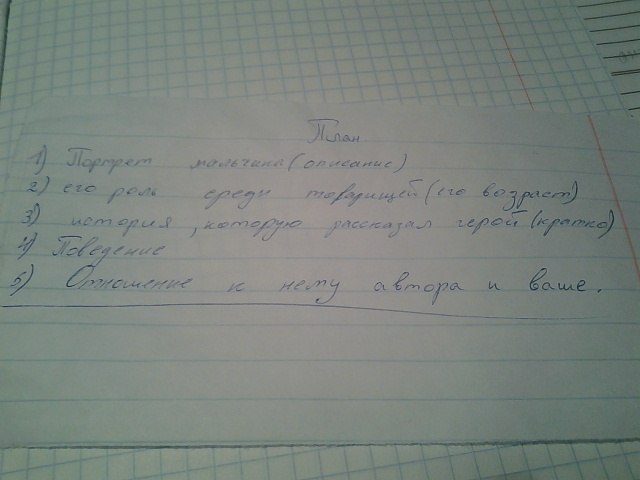 План
1) Портрет мальчика (описание)
2) его роль среди товарищей (его возраст)
3) история, которую рассказал герой (кратко)
4) Поведение
5) Отношение к нему автора и ваше.